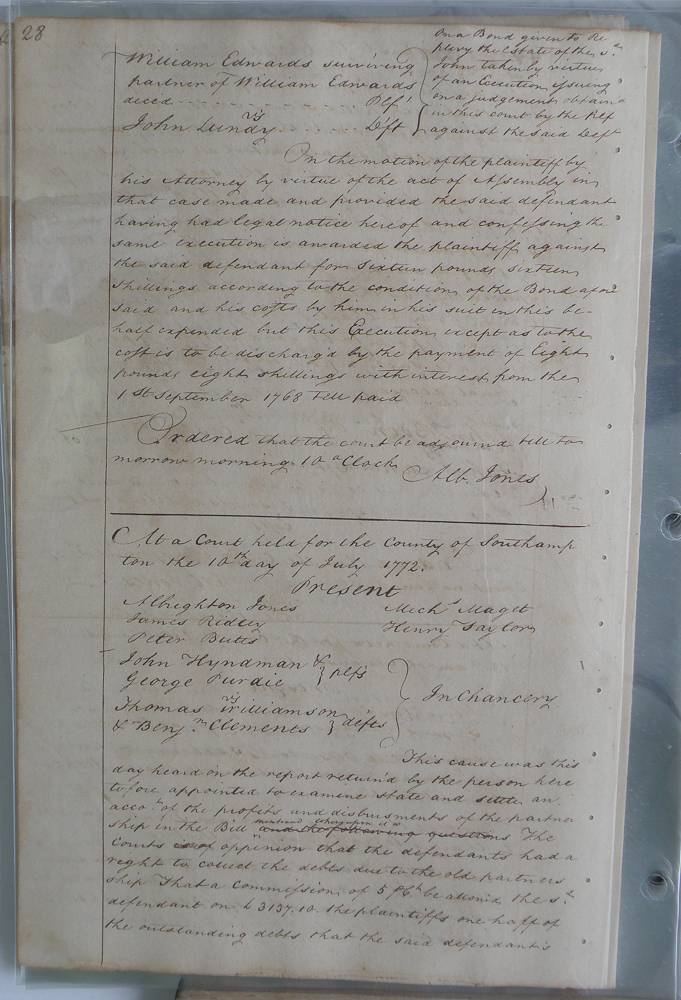 28
William Edwards surviving
partner of William Edwards
deced - - - - - - - - - - Plf
vs
John Lundy - - - - - - - Deft
on a Bond given to Re
plevy the Estate of the sd
John taken by virtue
of an Execution issuing
on a judgement obtaind
in this court by the Plf
against the said Deft
On the motion of the plaintif by
his Attorney by virtue of the act of Assembly in
that case made and provided the said defendant
having had legal notice hereof and confessing the
same execution is awarded the plaintiff against
the said defendant for Sixteen pounds sixteen
shillings according to the condition of the Bond afore
said and his costs by him in his suit in this be-
half expended but this Execution except as to the
cost is to be dischargd by the payment of Eight
pounds eight shillings with interest from the
1 St September 1768 till paid
Ordered that the court be adjournd till to
morrow morning 10 oClock
Alb. Jones
At a Court held for the County of Southamp
ton the 10th day of July 1772.
Present
Albrighton Jones
James Ridley
Peter Butts
Mich.l Maget
Henry Taylor
John Hyndman &
George Purdie } plfs
vs
Thomas Williamson
& Benj.m Clements } defts
In Chancery
This cause was this
day heard on the report returnd by the person here
tofore appointed to examine state and settle an
acco.t of the profits and disbursments of the partner
ship in the Bill mentiond whereupon it is and the following questions The
Courts is of oppinion that the defendants had a
reght to collect the debts due to the old partners
ship That a Commission of 5 be the s.d
defendant on £3137.10. the plaintiffs one haff of
the outstanding debts that the said defendants